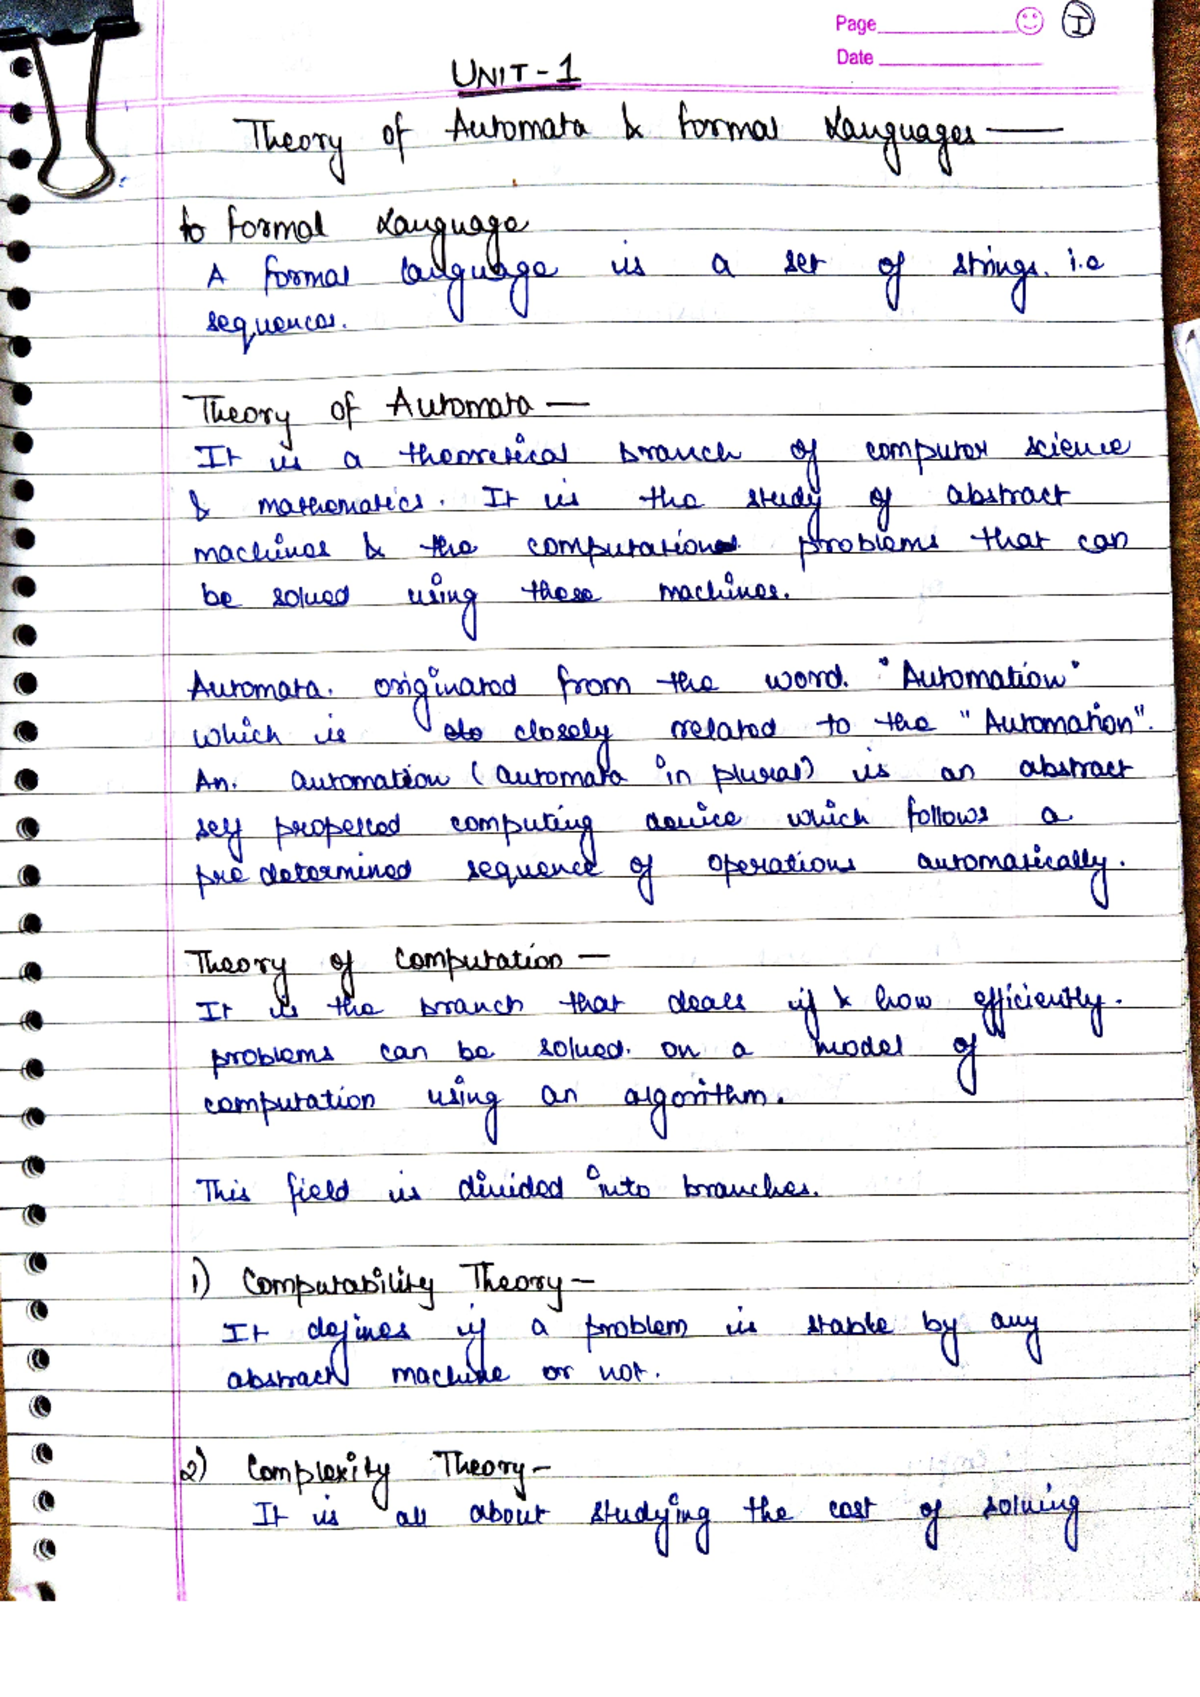 Page
Date
I
UNIT-1
Theory of Automata & Formal Languages —
to Formal Language
A formal language is a set of strings. i.e
sequences.
Theory of Automata —
It is a theoretical branch of computer science
& mathematics. It is the study of abstract
machines & the computational problems that can
be solved using these machines.
Automata. originated from the word. "Automation"
which is closely related to the "Automation".
An. automation (automata in plural) is an abstract
self propelled computing device which follows a
pre determined sequence of operations automatically.
Theory of Computation —
It is the branch that deals if & how efficiently.
problems can be solved. on a model of
computation using an algorithm.
This field is divided into branches.
1) Computability Theory —
It defines if a problem is stable by any
abstract machine or not.
2) Complexity Theory —
It is all about studying the cost of solving